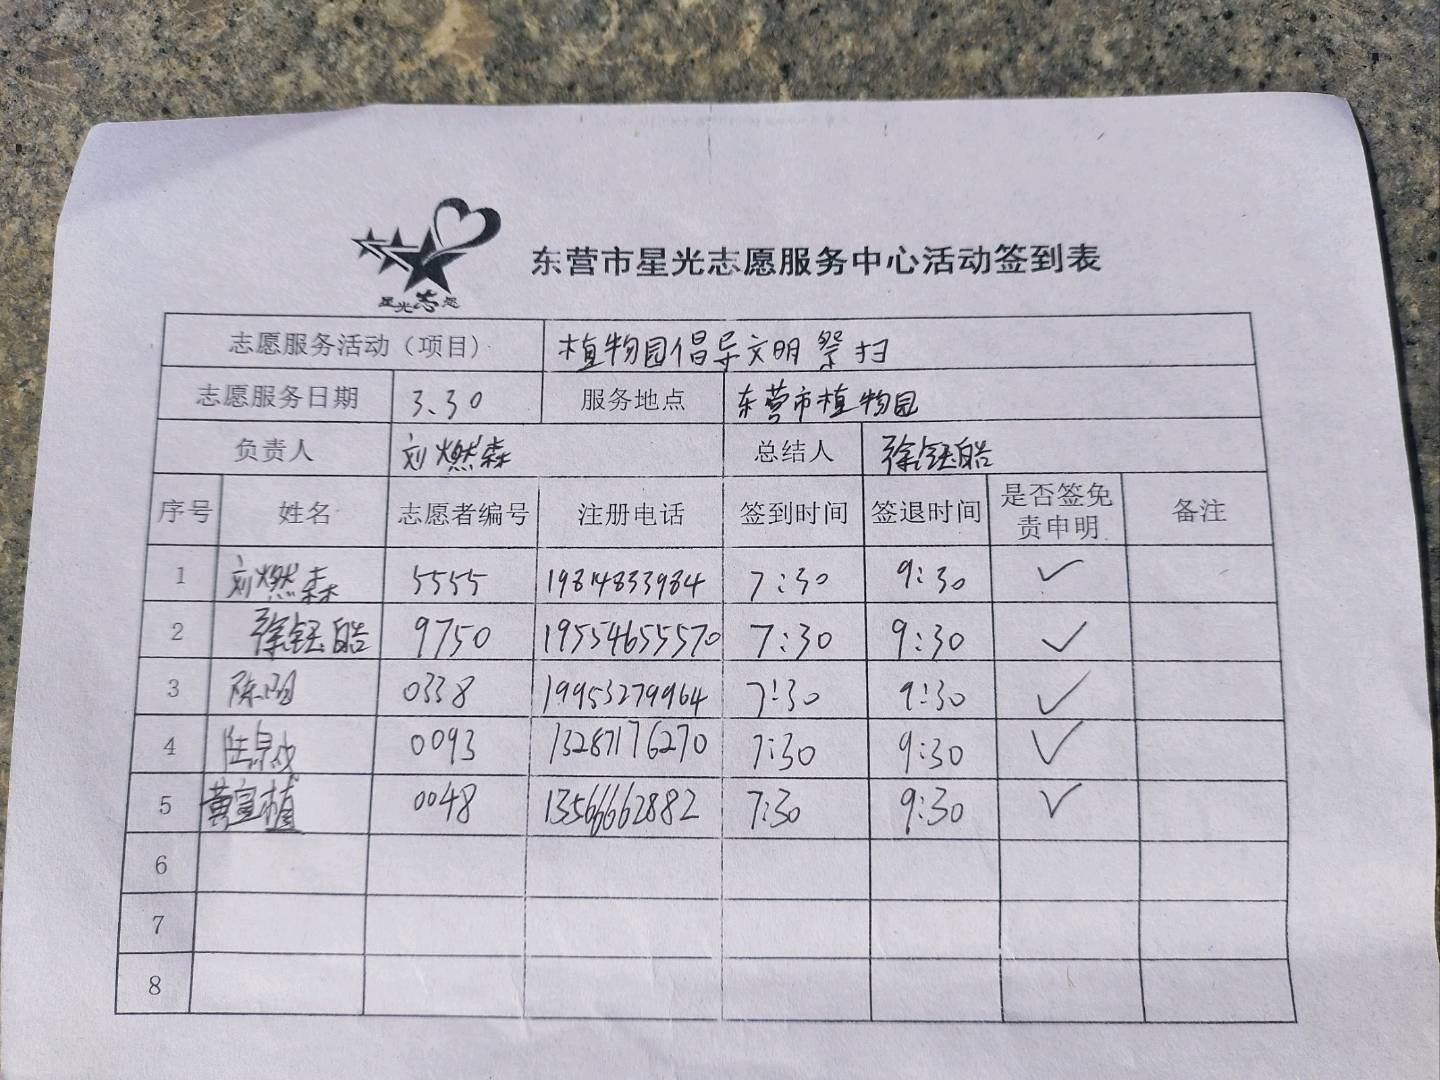 星光志愿
东营市星光志愿服务中心活动签到表
志愿服务活动（项目） 植物园倡导文明祭扫
志愿服务日期 3.30 服务地点 东营市植物园
负责人 刘燃森 总结人 徐钰皓
序号 姓名 志愿者编号 注册电话 签到时间 签退时间 是否签免责申明 备注
1 刘燃森 5555 19814833984 7:30 9:30 ✓
2 徐钰皓 9750 19554655570 7:30 9:30 ✓
3 0338 19953279964 7:30 9:30 ✓
4 0093 13287176270 7:30 9:30 ✓
5 黄宣植 0048 13566662882 7:30 9:30 ✓
6
7
8